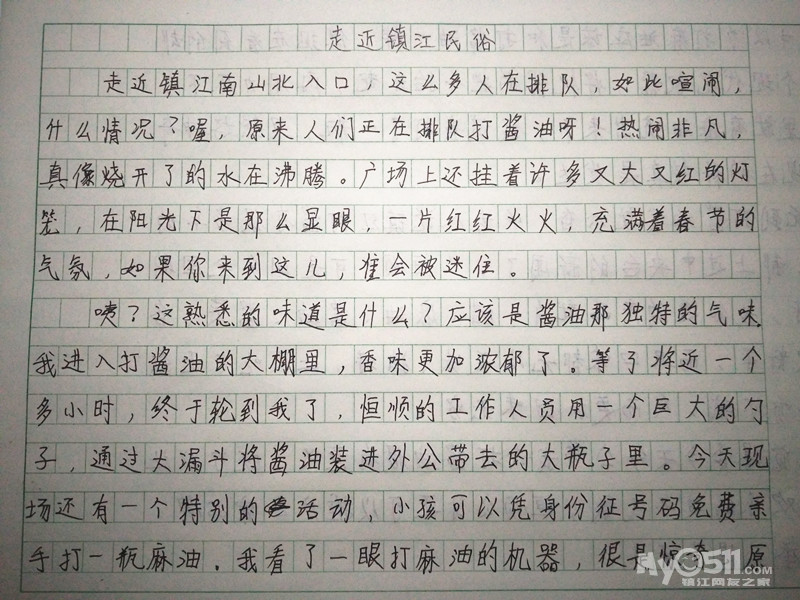 走近镇江民俗
走近镇江南山北入口，这么多人在排队，如此喧闹，
什么情况？喔，原来人们正在排队打酱油呀！热闹非凡，
真像烧开了的水在沸腾。广场上还挂着许多又大又红的灯
笼，在阳光下是那么显眼，一片红红火火，充满着春节的
气氛，如果你来到这儿，准会被迷住。
咦？这熟悉的味道是什么？应该是酱油那独特的气味
我进入打酱油的大棚里，香味更加浓郁了。等了将近一个
多小时，终于轮到我了，恒顺的工作人员用一个巨大的勺
子，通过大漏斗将酱油装进外公带去的大瓶子里。今天现
场还有一个特别的活动，小孩可以凭身份征号码免费亲
手打一瓶麻油。我看了一眼打麻油的机器，很是惊奇，原
My0511.com
镇江网友之家